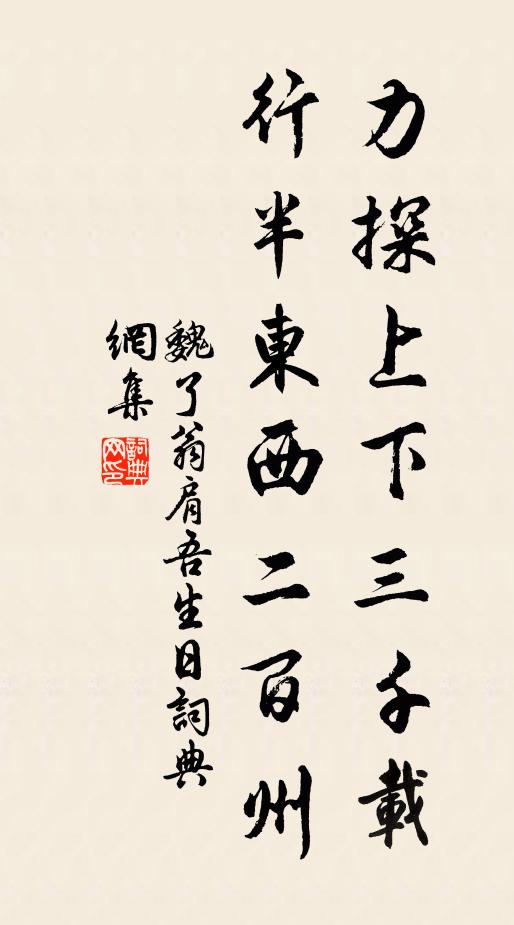 力探上下三千載
行半東西二百州
魏了翁肩吾生日詞典
網集
詞典網印